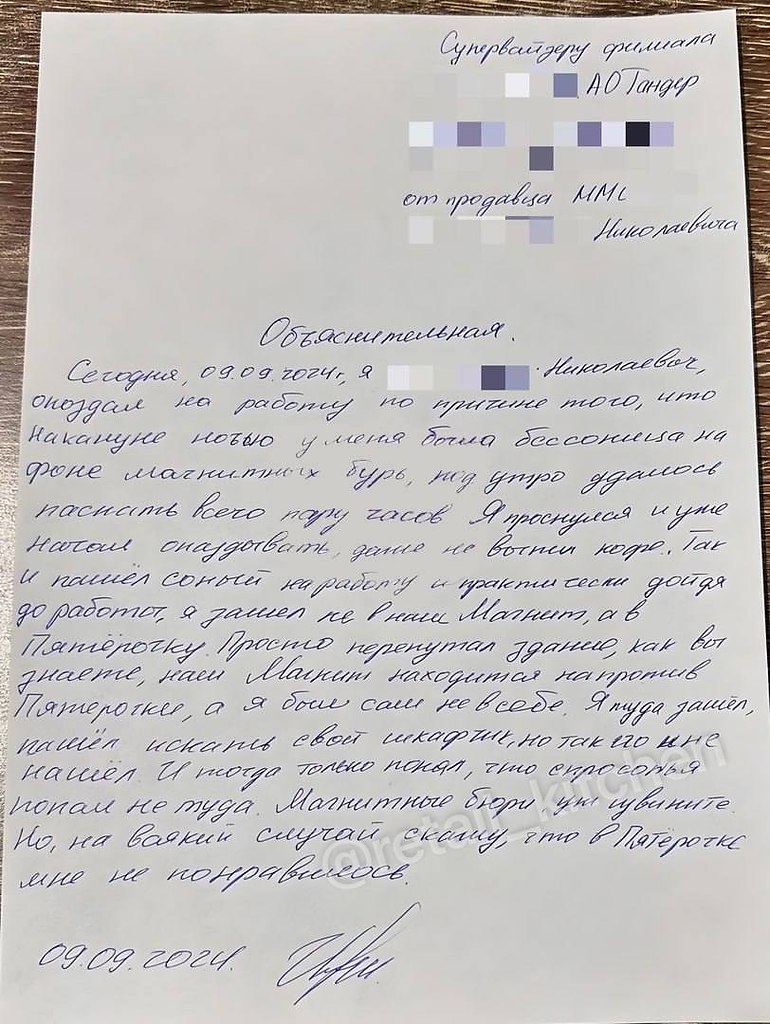 Супервайзеру филиала
АО Тандер
от продавца ММС
Николаевича
Объяснительная.
Сегодня, 09.09.2024г, я Николаевич,
опоздал на работу по причине того, что
накануне ночью у меня была бессоница на
фоне магнитных бурь, под утро удалось
паспать всего пару часов Я проснулся и уже
начал опаздывать, даже не выпил кофе. Так
и пашёл соный на работу и практически дойдя
до работы, я зашел не в наш Магнит, а в
Пятёрочку. Просто перепутал здание, как вы
знаете, наш Магнит находится напротив
Пятерочки, а я был сам не в себе. Я туда зашёл,
пашёл искать свой шкафчик, но так его и не
нашёл. И тогда только понял, что спросонья
попал не туда. Магнитные бюри уж извините.
Но, на всякий случай скажу, что в Пятёрочке
мне не понравилось.
09.09.2024.
@retail_kitchen